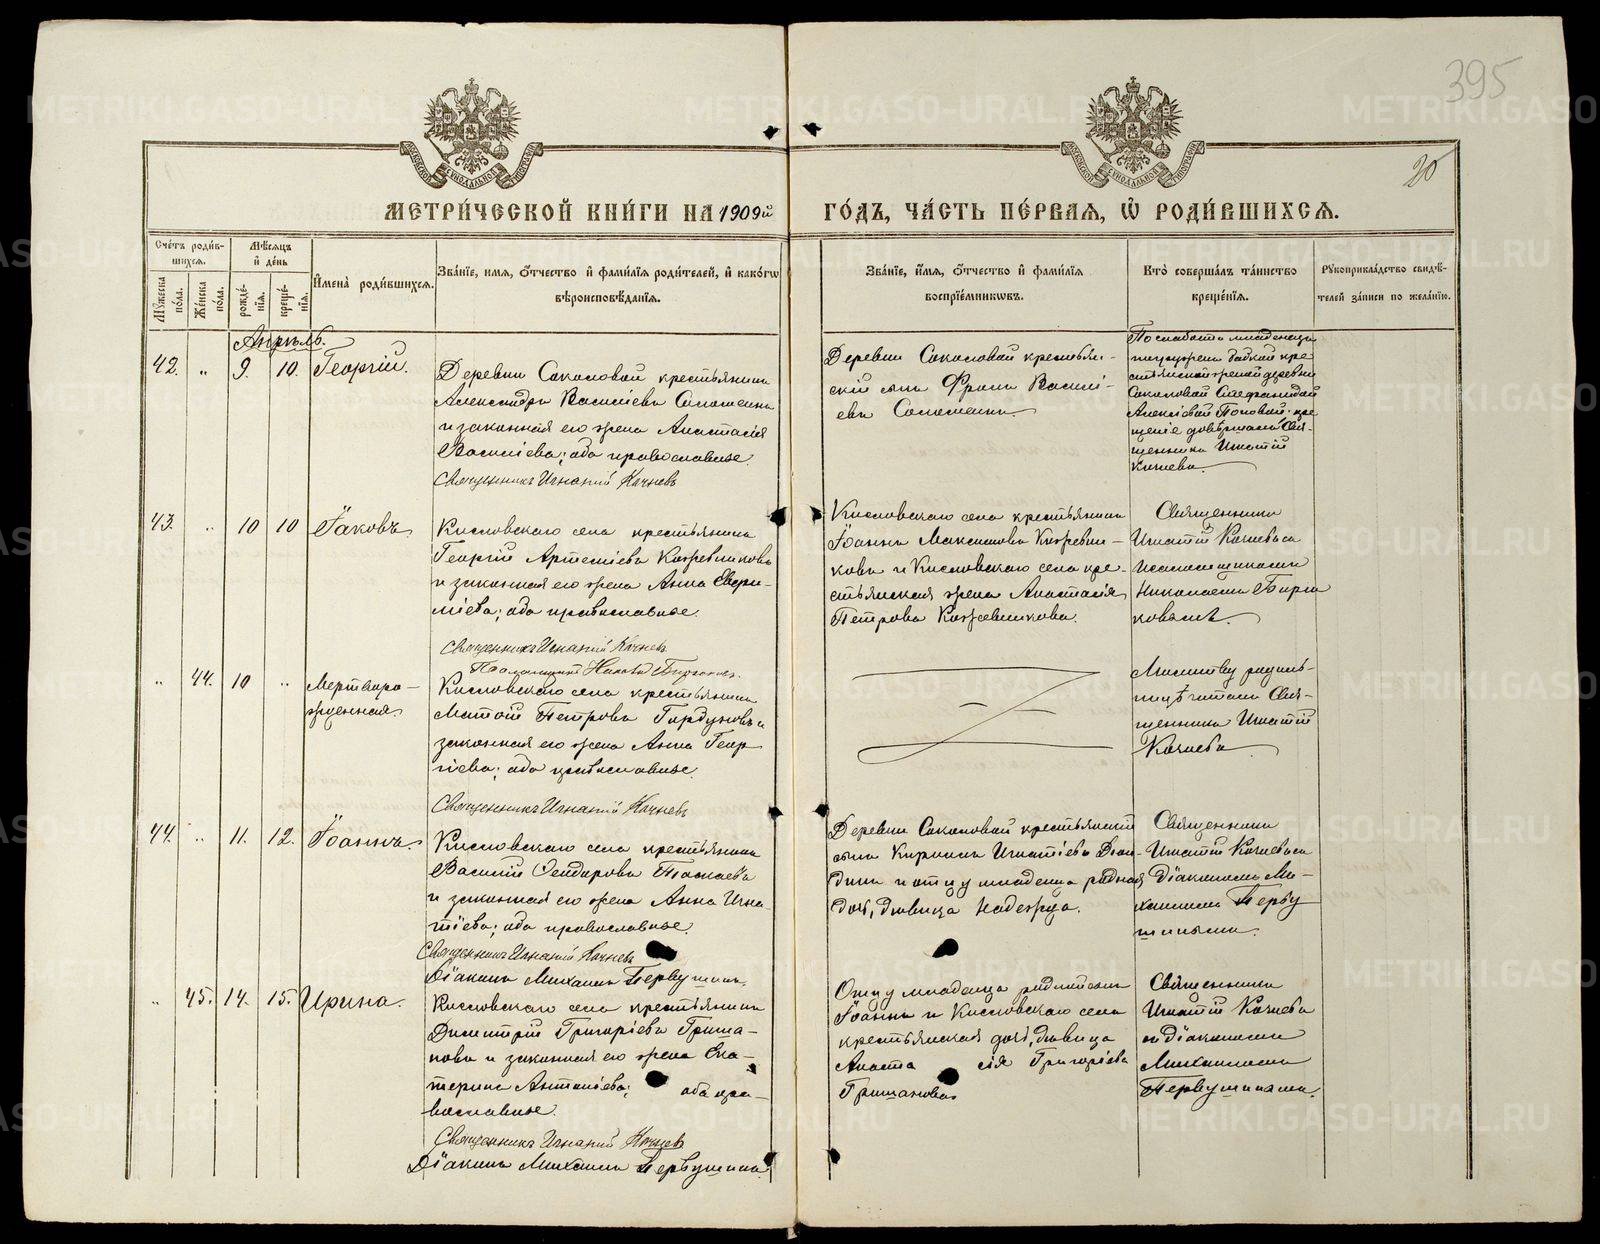 395
20
МЕТРИ́ЧЕСКОЙ КНИ́ГИ НА 1909й ГО́ДЪ, ЧА́СТЬ ПЕ́РВАЯ, Ѽ РОДИ́ВШИХСЯ.
Сче́тъ роди́в-
шихся.
Мѣ́сяцъ
и҆ де́нь
Мꙋ́жеска по́ла.
Же́нска по́ла.
рожде́-
нїѧ.
креще́-
нїѧ.
И҆мена̀ роди́вшихся.
Зва́нїе, и҆мя, ѻ҆́тчество и҆ фами́лїя роди́телей, и҆ како́гѡ
вѣроисповѣ́данїя.
Зва́нїе, и҆́мя, ѻ҆́тчество и҆ фами́лїя
воспрїе́мникѡвъ.
Кто̀ соверша́лъ та́инство
креще́нїя.
Рꙋкоприкла́дство свидѣ́-
телей за́писи по жела́нїю.
Апрѣль.
42. „ 9. 10. Георгій.
Деревни Соколовой крестьянинъ
Александръ Василіевъ
и законная его жена Анастасія
Василіева; оба православные.
Священникъ Игнатій Кочневъ
Деревни Соколовой крестьян-
скій сынъ Василі-
евъ
По слабости младенецъ
погруженъ бабкой кре-
стьянской женой деревни
Соколовой Стефанидой
Алексіевой Поповой, кре-
щеніе довершалъ Свя-
щенникъ Игнатій
Кочневъ.
43. „ 10 10 Іаковъ
Кисловскаго села крестьянинъ
Георгій Артеміевъ Кожевниковъ
и законная его жена Анна
оба православные.
Священникъ Игнатій Кочневъ
Кисловскаго села крестьянинъ
Іоаннъ Максимовъ Кожевни-
ковъ и Кисловскаго села кре-
стьянская жена Анастасія
Петрова Кожевникова.
Священникъ
Игнатій Кочневъ съ
Псаломщикомъ
Николаемъ
„ 44. 10 „ Мертворо-
жденная.
Кисловскаго села крестьянинъ
Петровъ
законная его жена Анна Геор-
гіева; оба православные.
Священникъ Игнатій Кочневъ
Молитву родиль-
ницѣ читалъ Свя-
щенникъ Игнатій
Кочневъ
44. „ 11. 12. Іоаннъ.
Кисловскаго села крестьянинъ
Василій
и законная его жена Анна Игна-
тіева; оба православные.
Священникъ Игнатій Кочневъ
Діаконъ Михаилъ Первушинъ.
Деревни Соколовой крестьянскій
сынъ Кириллъ Игнатіевъ
и отцу младенца родная
дочь, дѣвица Надежда.
Священникъ
Игнатій Кочневъ съ
Діакономъ Ми-
хаиломъ Перву-
шинымъ.
„ 45. 14. 15. Ирина.
Кисловскаго села крестьянинъ
Димитрій Григоріевъ Гриша-
новъ и законная его жена Ека-
терина оба пра-
вославные.
Священникъ Игнатій Кочневъ
Діаконъ Михаилъ Первушинъ.
Отцу младенца родной сынъ
Іоаннъ и Кисловскаго села
крестьянская дочь, дѣвица
Анаста сія Григоріева
Гришанова
Священникъ
Игнатій Кочневъ
съ діакономъ
Михаиломъ
Первушинымъ.
METRIKI.GASO-URAL.RU